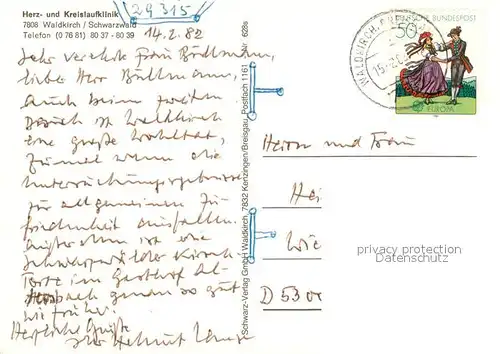 29315
Herz- und Kreislaufklinik
7808 Waldkirch / Schwarzwald
Telefon (0 76 81) 80 37 - 80 39
14.2.82
Sehr verehrte Frau Bullmann,
lieber Herr Bullmann,
auch beim zweiten
Besuch ist Waldkirch
eine große Wohltat,
zumal wenn die
Untersuchungsergebnisse
zur allgemeinen Zu-
friedenheit ausfallen.
Außerdem ist die
Schwarzwälder Kirsch-
Torte im Gasthof
genau so gut
wie früher.
Herzliche Grüße
Ihr Helmut
Schwarz-Verlag GmbH Waldkirch, 7832 Kenzingen/Breisgau, Postfach 1161 Nr. 628s
WALDKIRCH
DEUTSCHE BUNDESPOST
50
EUROPA
Herrn und Frau
Hei
Wie
D 5300
privacy protection
Datenschutz